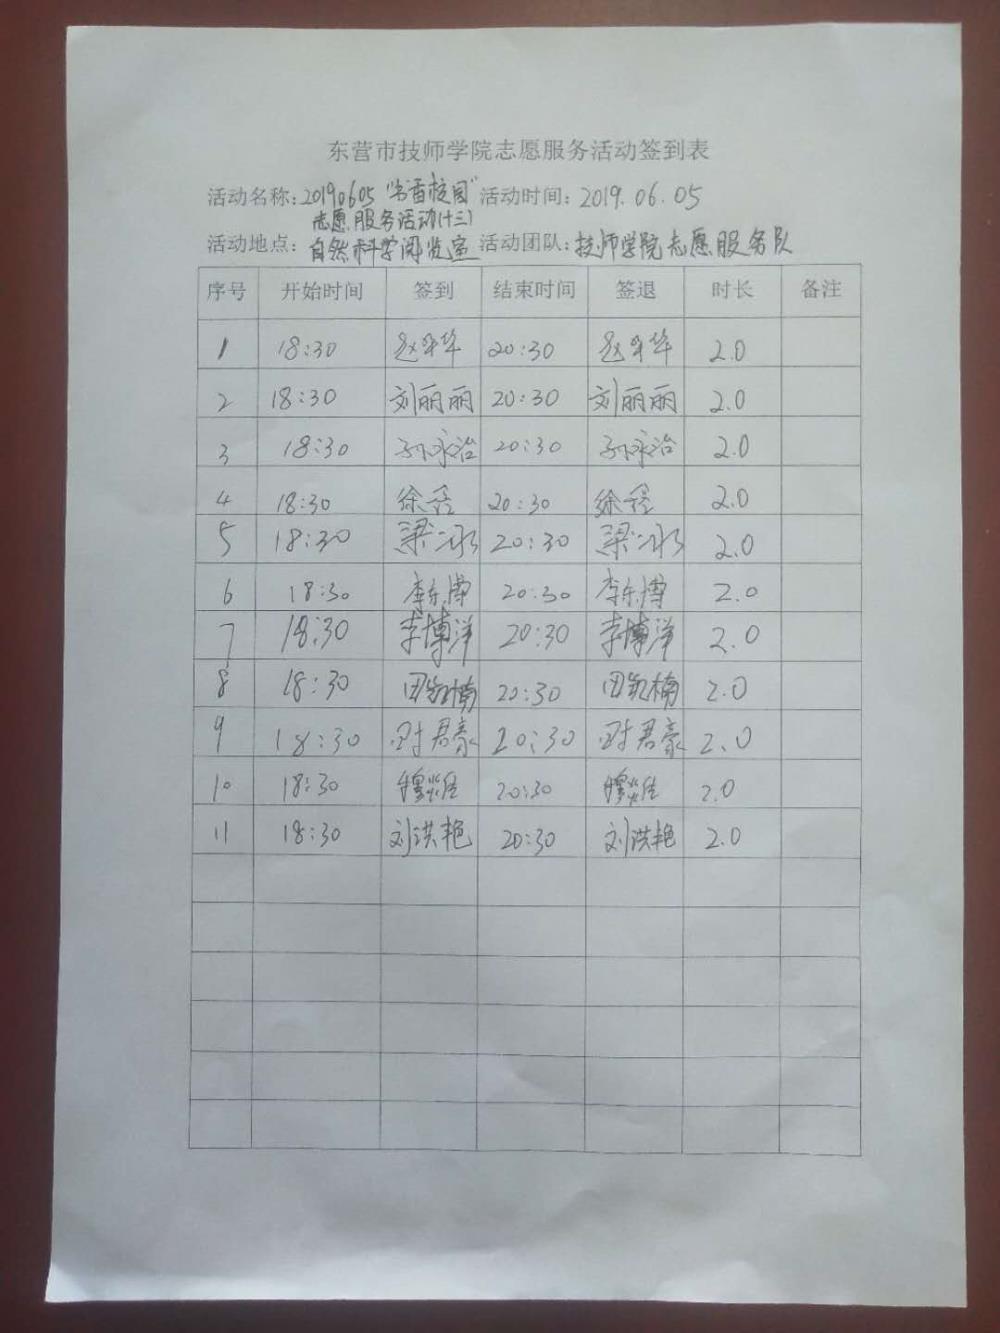 东营市技师学院志愿服务活动签到表
活动名称：20190605“书香校园”志愿服务活动(十三) 活动时间：2019.06.05
活动地点：自然科学阅览室 活动团队：技师学院志愿服务队
序号 开始时间 签到 结束时间 签退 时长 备注
1 18:30 20:30 2.0
2 18:30 刘丽丽 20:30 刘丽丽 2.0
3 18:30 孙咏治 20:30 孙咏治 2.0
4 18:30 20:30 2.0
5 18:30 梁冰 20:30 梁冰 2.0
6 18:30 李东博 20:30 李东博 2.0
7 18:30 李博洋 20:30 李博洋 2.0
8 18:30 田凯楠 20:30 田凯楠 2.0
9 18:30 时君豪 20:30 时君豪 2.0
10 18:30 20:30 2.0
11 18:30 刘洪艳 20:30 刘洪艳 2.0